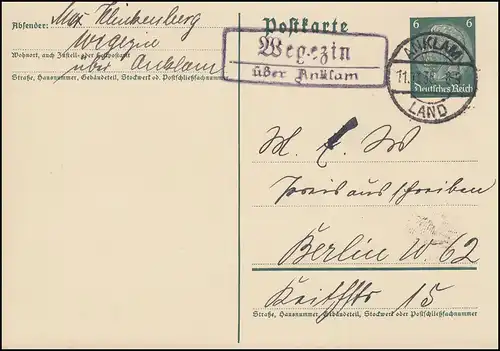 Absender: Max Klinkenberg
Wegezin
Wohnort, auch Zustell- oder Leitpostamt
über Anklam
Straße, Hausnummer, Gebäudeteil, Stockwerk od. Postschließfachnummer
Postkarte
Wegezin
über Anklam
6 6
Deutsches Reich
ANKLAM
LAND
M. d. W
Preisausschreiben
Berlin W. 62
Keithstr 15
Straße, Hausnummer, Gebäudeteil, Stockwerk oder Postschließfachnummer